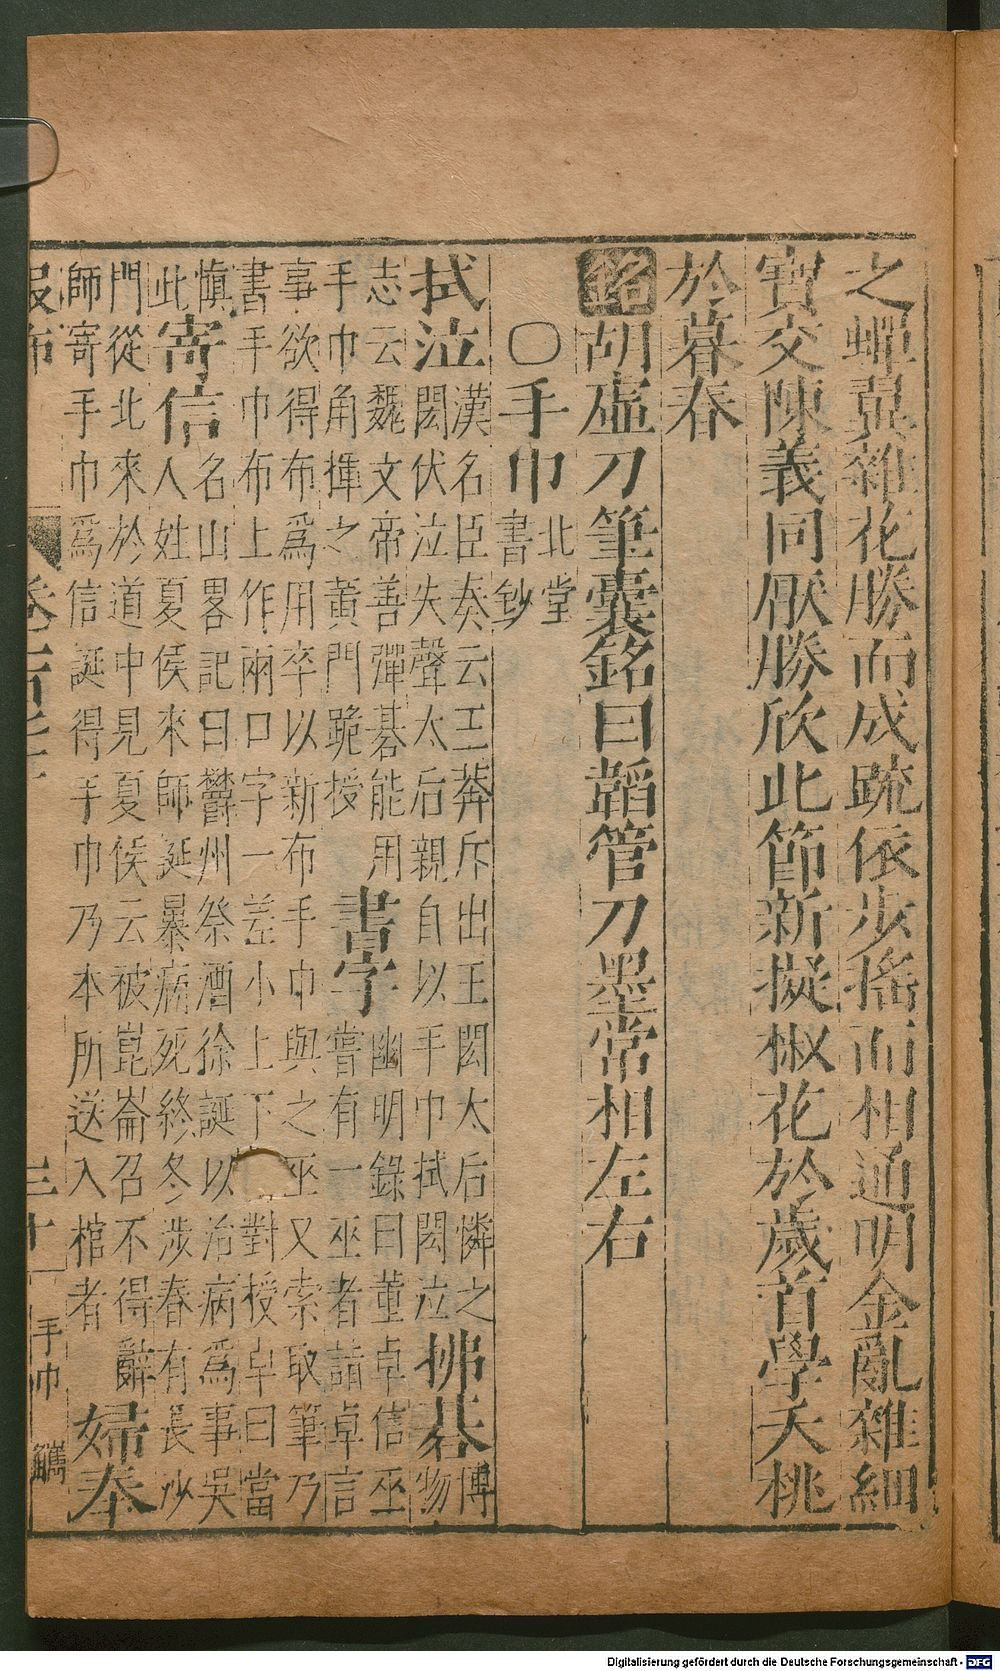 之蟬翼雜花勝而成疏依步搖而相通明金亂雜細
寶交陳義同厭勝欣此節新擬椒花於歲首學夭桃
於暮春
銘胡虛刀筆囊銘曰韜管刀墨常相左右
○手巾北堂書鈔
拭泣漢名臣奏云王莽斥出王閎太后憐之閎伏泣失聲太后親自以手巾拭閎泣拂碁博物
志云魏文帝善彈碁能用手巾角揮之書字幽明錄曰董卓信巫嘗有一巫者詣卓言
黃門跪授
事欲得布為用卒以新布手巾與之巫又索取筆乃書手巾布上作兩口字一差小上下對授卓曰當
慎此寄信名山畧記曰鬱州祭酒徐誕以治病為事吳人姓夏侯來師誕暴病死終冬涉春有長沙
門從北來於道中見夏侯云被崑崙召不得辭師寄手巾為信誕得手巾乃本所送入棺者婦奉
叚布
三十一
手巾